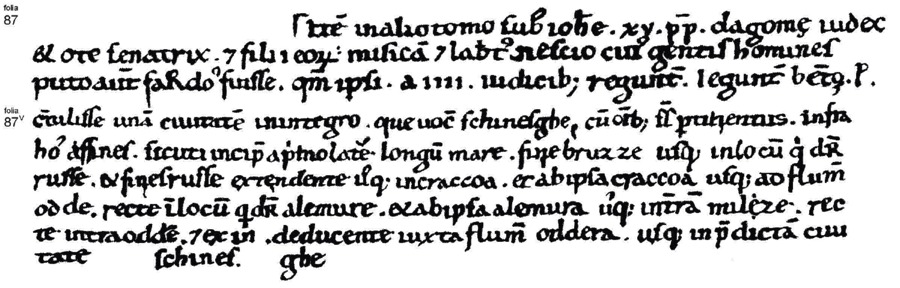 folia
87
Itē in alio tomo sub iohē . xv . pp̄ . dagomę iudex
& ote senatrix . ⁊ filii eoꝝ: misicā ⁊ lābtꝰ nescio cuiꝰ gentis homines
puto aut̄ sardoꝰ fuisse . qm̄ ipsi . a IIII . iudicib; regunt̄. legunt̄ bt̄ǫ. P̄.
folia
87v
cōtulisse unā ciuitatē inintegro . que uoc̄ schinesghe, cū oīb; sł p̱tinentiis . infra
hoꝰ affines . sicuti incip̄ a p̍mo latē longū mare . fine bruzze usq; inlocū q̍ dr̄
russe . & fines russē extendente usq; incraccoa . et ab ipsa craccoa usq; ad flum̄
odde . recte īlocū q̍ dr̄ alemure . & ab ipsa alemura usq; intrā milęze . rec
te intra odde . ⁊ ex in̄ . deducente iuxta flum̄ oddera . usq; in p̄dictā ciui
tate schines. ghe